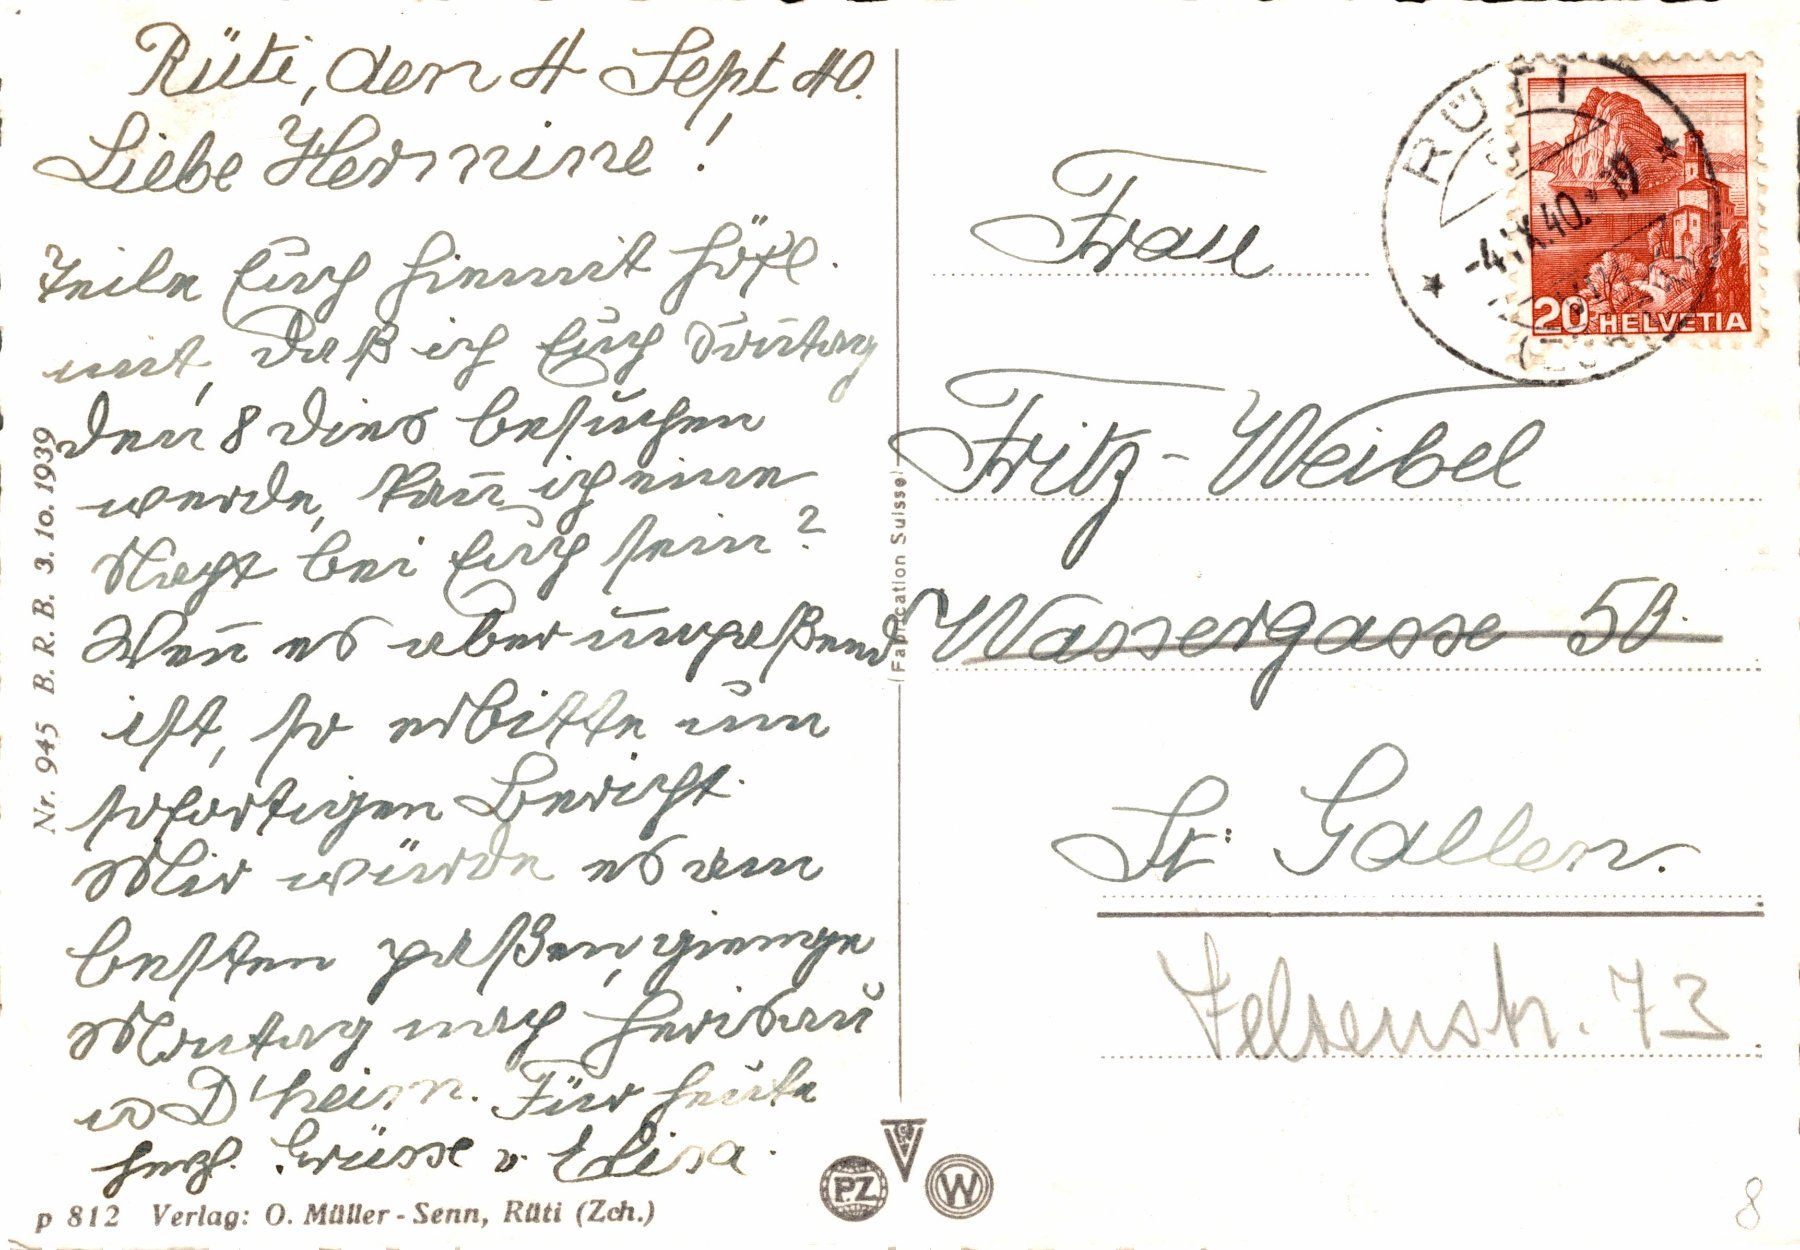 Rüti, den 4 Sept 40.
Liebe Hermine!
Teile Euch hiemit höfl.
mit, daß ich Euch Sonntag
den 8 dies besuchen
werde, kan̅ ich eine
Nacht bei Euch sein?
Wen̅ es aber unpaßend
ist, so erbitte um
sofortigen Bericht.
Mir würde es am
besten paßen, gienge
Montag nach Herisau
u D'heim. Für heute
herzl. Grüsse v. Elisa.
Nr. 945 B. R. B. 3. 10. 1939
p 812 Verlag: O. Müller-Senn, Rüti (Zch.)
(Fabrication Suisse)
PZ
W
RÜTI
-4.IX.40.-19
(ZÜRICH)
20 HELVETIA
Frau
Fritz-Weibel
Wassergasse 50.
St: Gallen.
Felsenstr. 73
8